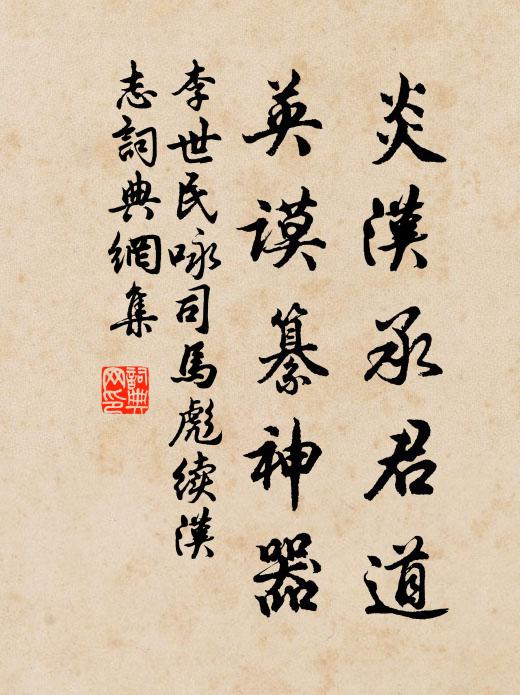 炎漢承君道
英謨纂神器
李世民咏司馬彪續漢
志詞典網集
詞典
网印